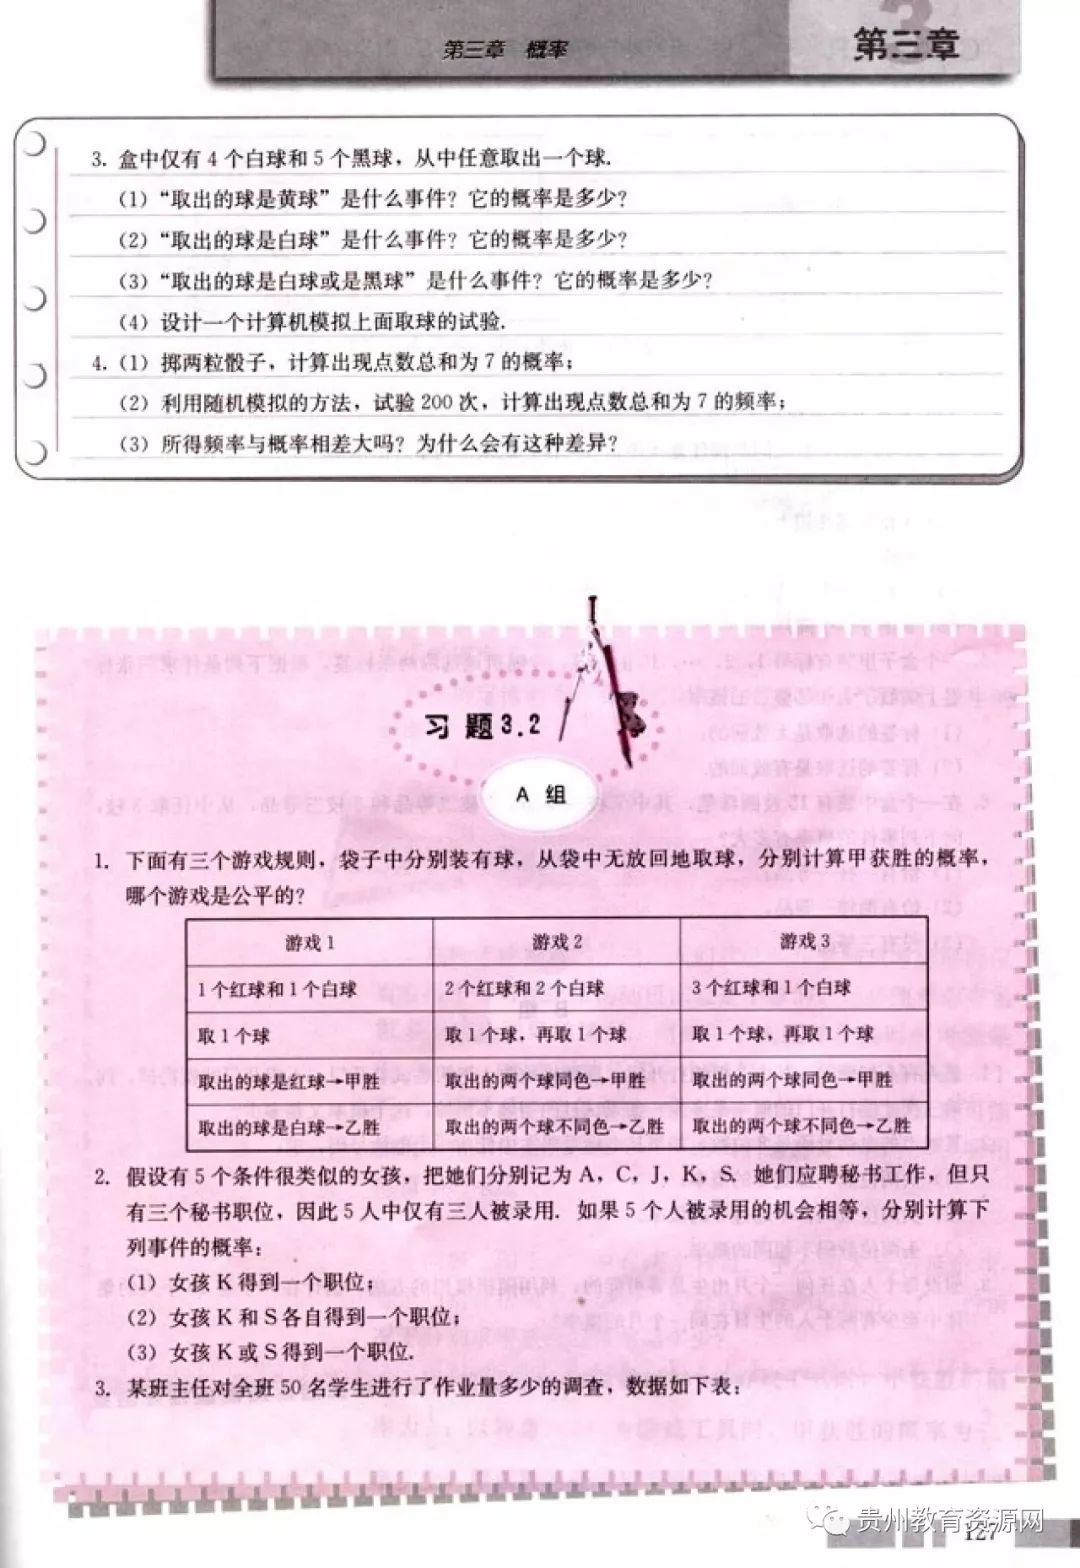 第三章 概率
第三章
3. 盒中仅有 4 个白球和 5 个黑球，从中任意取出一个球.
(1) “取出的球是黄球” 是什么事件？它的概率是多少？
(2) “取出的球是白球” 是什么事件？它的概率是多少？
(3) “取出的球是白球或是黑球” 是什么事件？它的概率是多少？
(4) 设计一个计算机模拟上面取球的试验.
4. (1) 掷两粒骰子，计算出现点数总和为 7 的概率；
(2) 利用随机模拟的方法，试验 200 次，计算出现点数总和为 7 的频率；
(3) 所得频率与概率相差大吗？为什么会有这种差异？
习题3.2
A 组
1. 下面有三个游戏规则，袋子中分别装有球，从袋中无放回地取球，分别计算甲获胜的概率，
哪个游戏是公平的？
游戏 1 游戏 2 游戏 3
1 个红球和 1 个白球 2 个红球和 2 个白球 3 个红球和 1 个白球
取 1 个球 取 1 个球，再取 1 个球 取 1 个球，再取 1 个球
取出的球是红球→甲胜 取出的两个球同色→甲胜 取出的两个球同色→甲胜
取出的球是白球→乙胜 取出的两个球不同色→乙胜 取出的两个球不同色→乙胜
2. 假设有 5 个条件很类似的女孩，把她们分别记为 A，C，J，K，S. 她们应聘秘书工作，但只
有三个秘书职位，因此 5 人中仅有三人被录用. 如果 5 个人被录用的机会相等，分别计算下
列事件的概率：
(1) 女孩 K 得到一个职位；
(2) 女孩 K 和 S 各自得到一个职位；
(3) 女孩 K 或 S 得到一个职位.
3. 某班主任对全班 50 名学生进行了作业量多少的调查，数据如下表：
贵州教育资源网
127